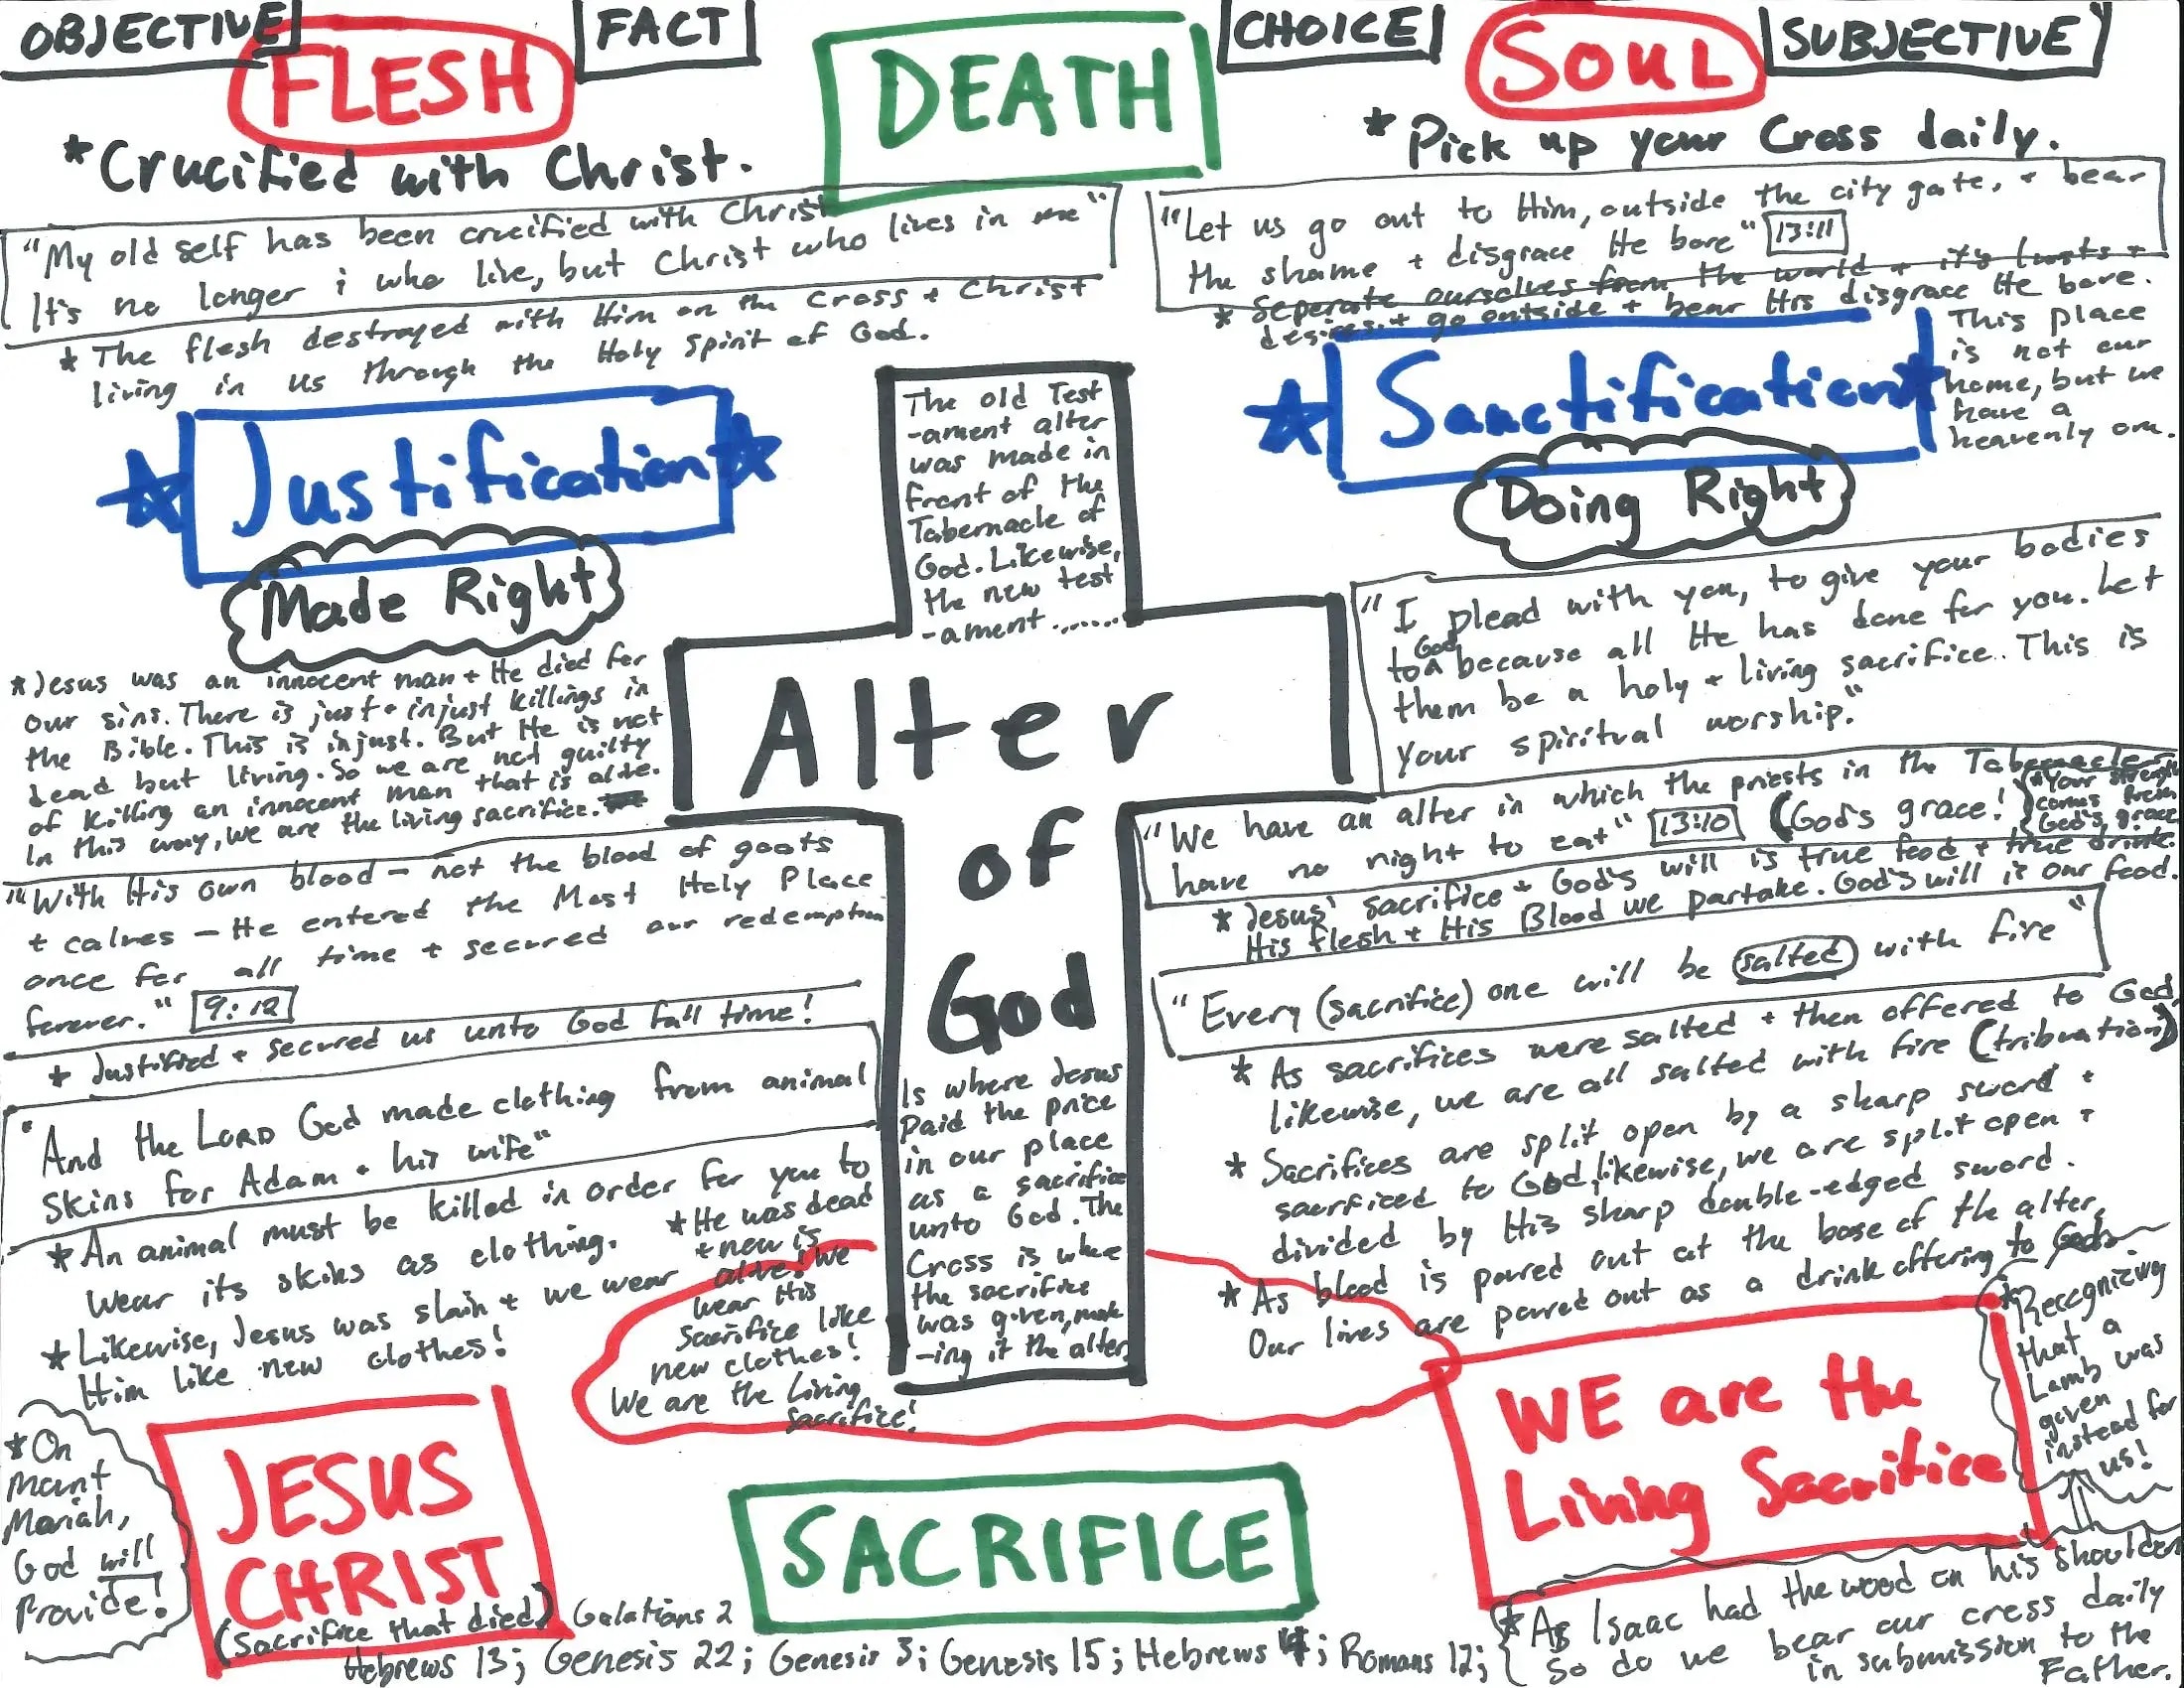 OBJECTIVE
FLESH
FACT
DEATH
CHOICE
SOUL
SUBJECTIVE
*Crucified with Christ.
"My old self has been crucified with Christ
It's no longer i who live, but Christ who lives in me"
* The flesh destroyed with Him on the cross + Christ
living in us through the Holy Spirit of God.
*Justification*
Made Right
*Jesus was an innocent man + He died for
our sins. There is just + injust killings in
the Bible. This is injust. But He is not
dead but living. So we are not guilty
of killing an innocent man that is alive.
In this way, we are the living sacrifice.
"With His own blood - not the blood of goats
+ calves - He entered the Most Holy Place
once for all time + secured our redemption
forever." 9:12
* Justified + secured us unto God fall time!
"And the LORD God made clothing from animal
skins for Adam + his wife"
*An animal must be killed in order for you to
wear its skins as clothing.
*Likewise, Jesus was slain + we wear
Him like new clothes!
*He was dead
+ now is
alive! We
wear His
sacrifice like
new clothes!
We are the Living
sacrifice!
*On
Mount
Moriah,
God will
Provide!
JESUS
CHRIST
(Sacrifice that died)
The old Test
-ament alter
was made in
front of the
Tabernacle of
God. Likewise,
the new test
-ament.......
Alter
of
God
Is where Jesus
Paid the price
in our place
as a sacrifice
unto God. The
Cross is where
the sacrifice
was given, mak
-ing it the alter.
SACRIFICE
* Pick up your Cross daily.
"Let us go out to Him, outside the city gate, + bear
the shame + disgrace He bore" 13:11
* Seperate ourselves from the world + it's lusts +
desires + go outside + bear His disgrace He bore.
This place
is not our
home, but we
have a
heavenly one.
*Sanctification*
Doing Right
"I plead with you, to give your bodies
to God because all He has done for you. Let
them be a holy + living sacrifice. This is
your spiritual worship."
"We have an alter in which the priests in the Tabernacle
have no right to eat" 13:10 (God's grace!
*Your strength
comes from
God's grace
* Jesus' sacrifice + God's will is true food + true drink.
His flesh + His Blood we partake. God's will is our food.
"Every (sacrifice) one will be salted with fire"
* As sacrifices were salted + then offered to God,
likewise, we are all salted with fire (tribuation)
* Sacrifices are split open by a sharp sword +
sacrficed to God, likewise, we are split open +
divided by His sharp double-edged sword.
* As blood is poured out at the base of the alter,
Our lives are poured out as a drink offering to God.
WE are the
Living Sacrifice
*Recognizing
that a
Lamb was
given
instead for
us!
*As Isaac had the wood on his shoulders
so do we bear our cross daily
in submission to the
Father.
Galatians 2
Hebrews 13; Genesis 22; Genesis 3; Genesis 15; Hebrews 4; Romans 12;